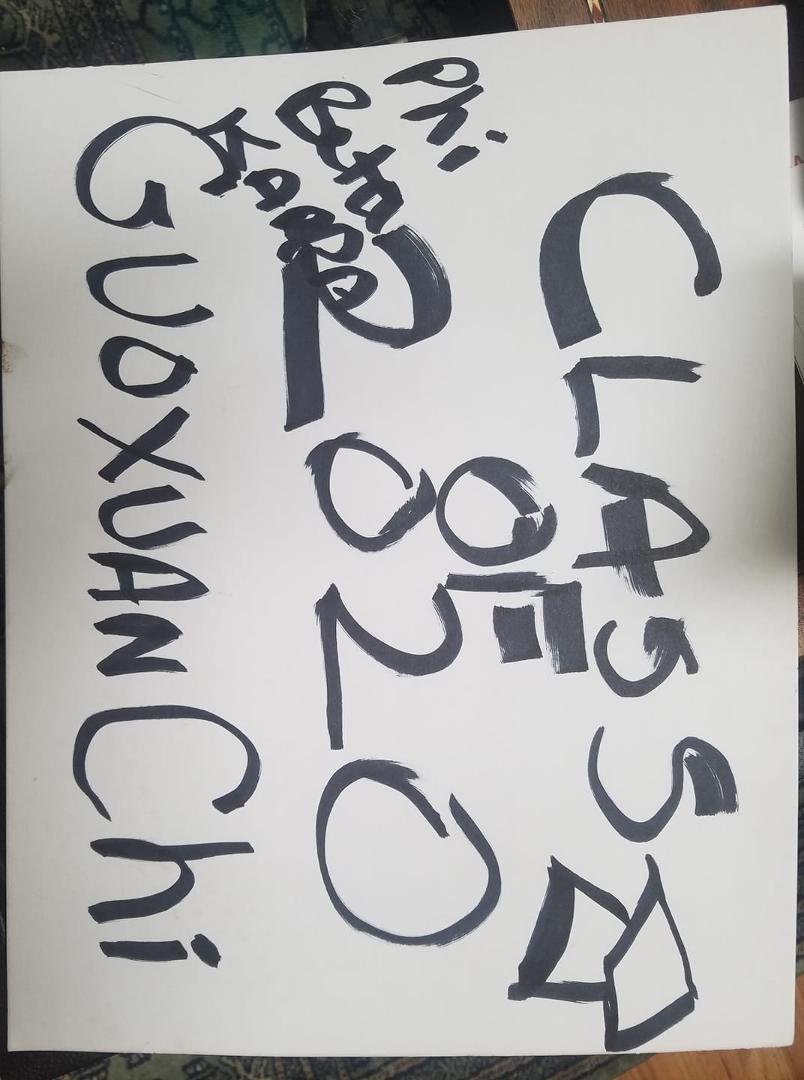 CLASS
OF
Phi
Beta
Kappa
2020
GUOXUAN Chi